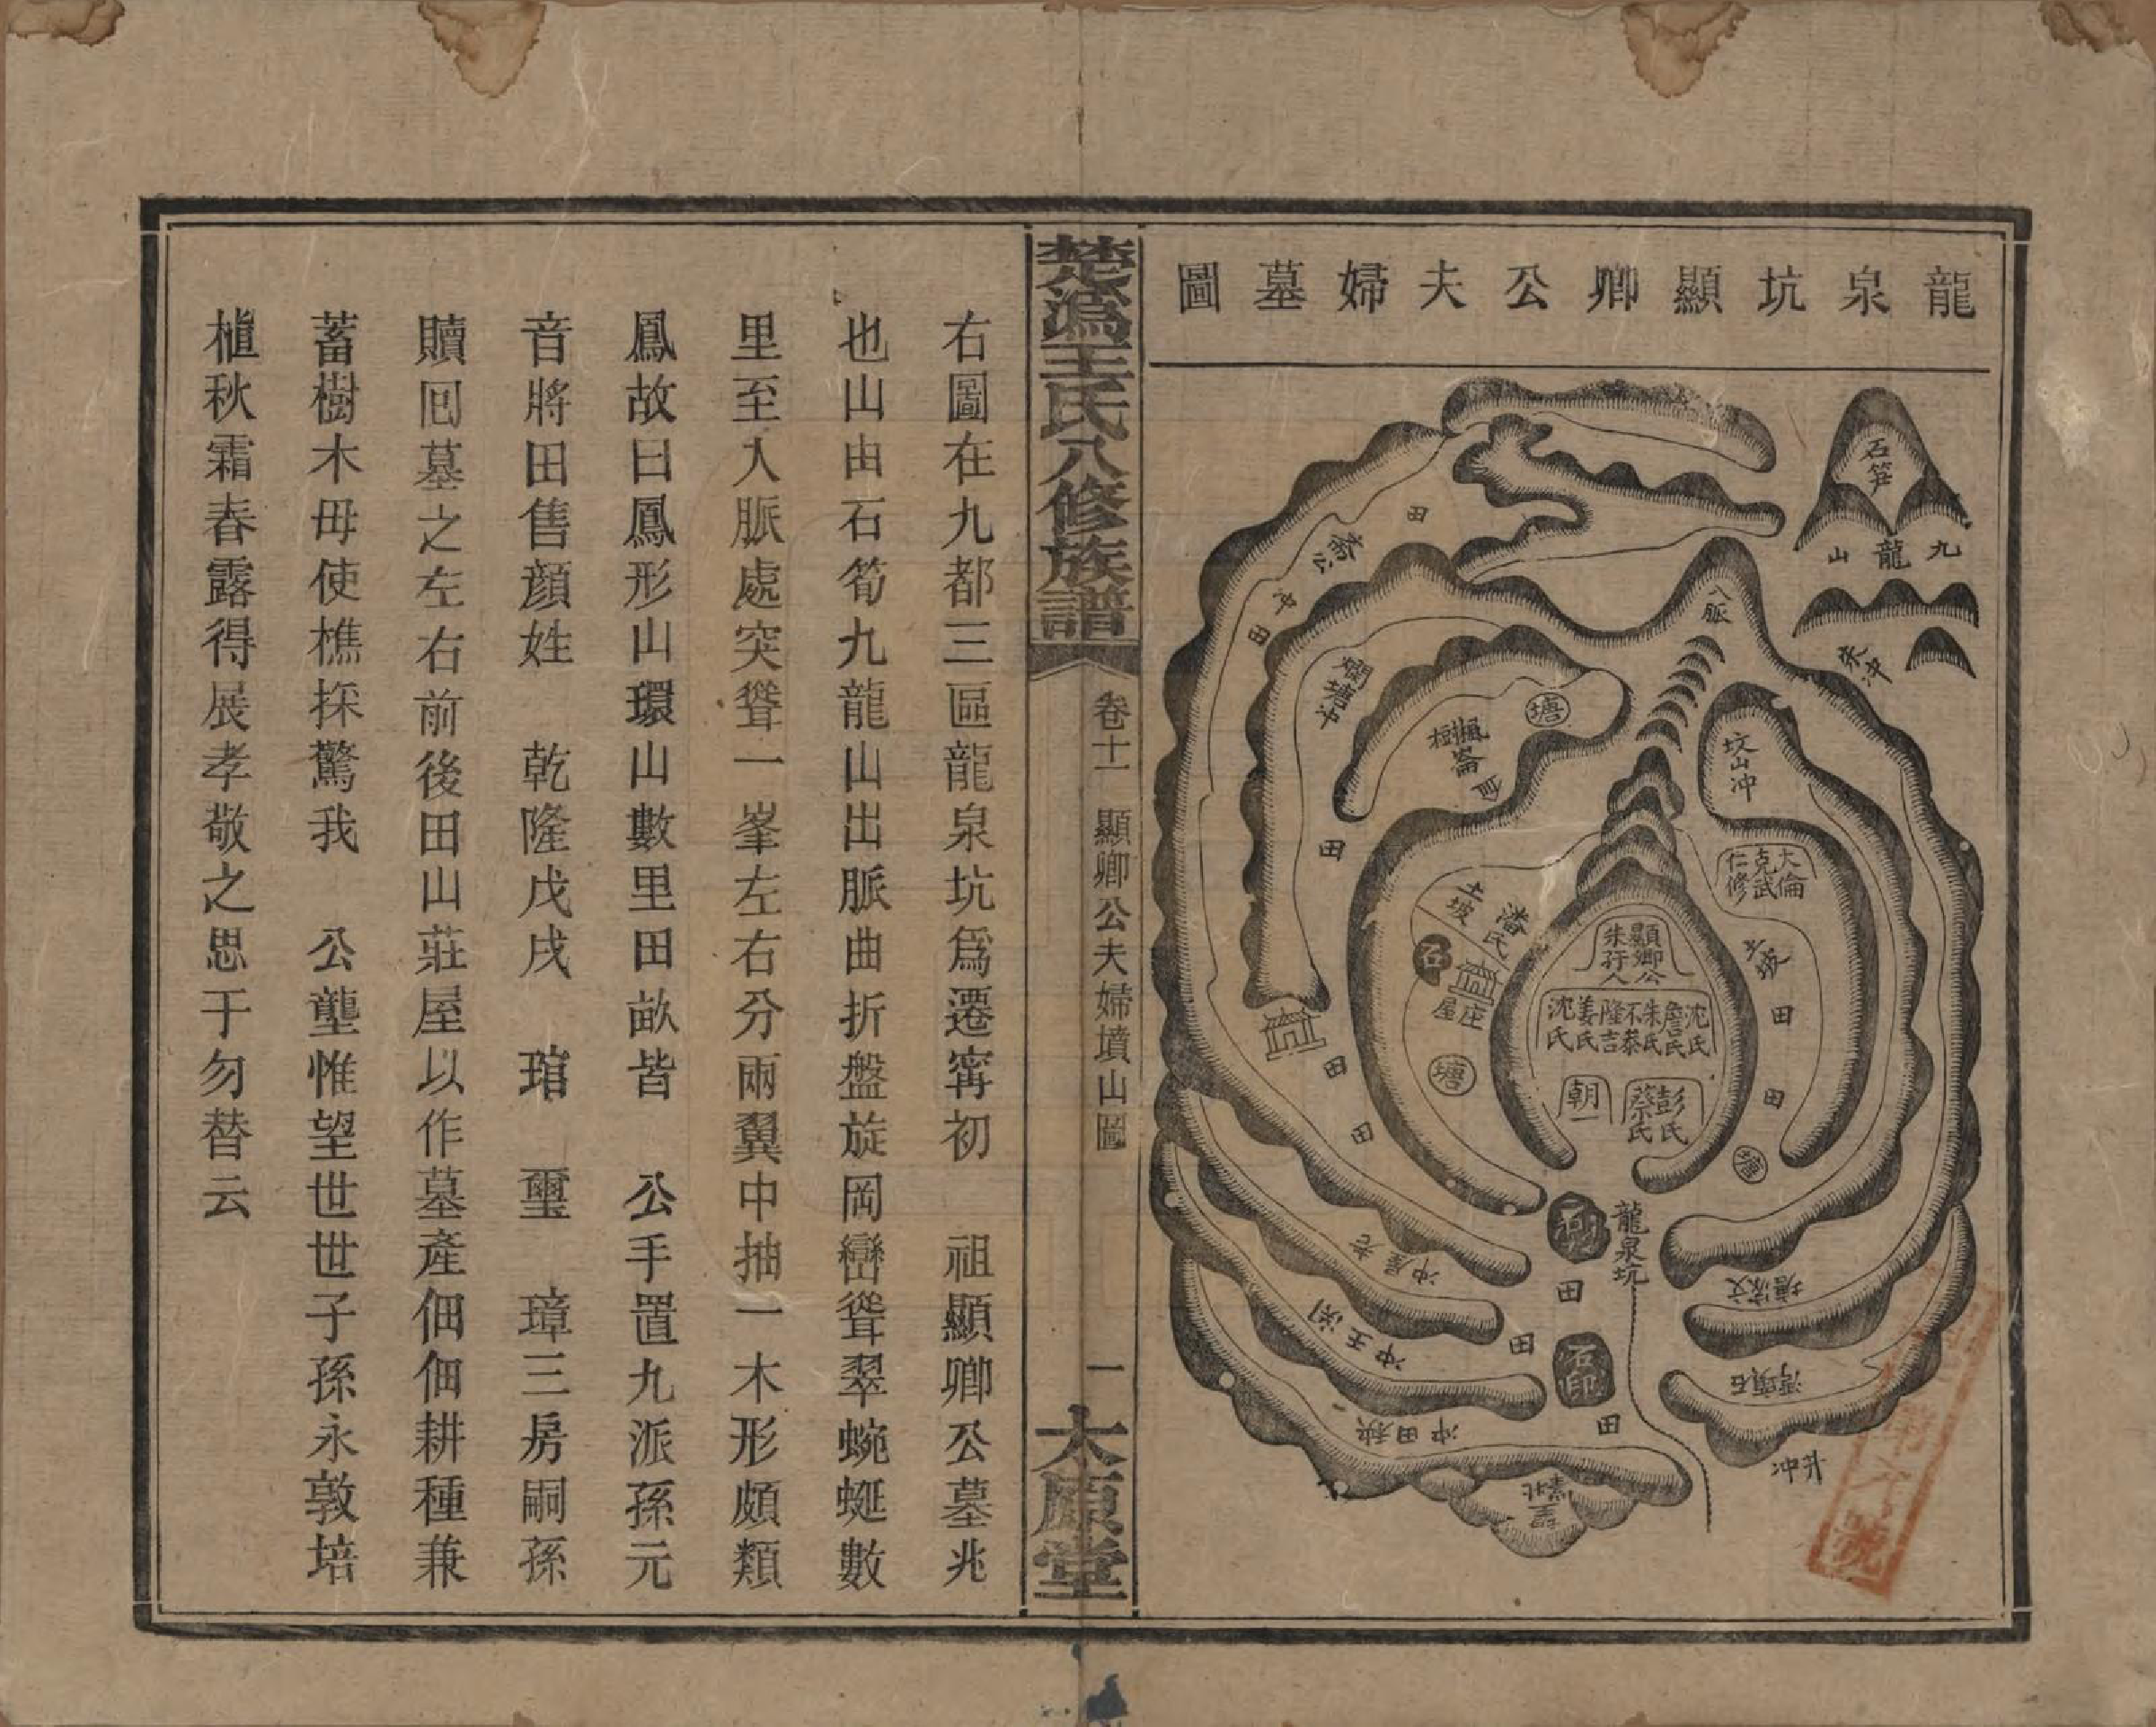 龍泉坑顯卿公夫婦墓圖
石笋
九龍山
入脈
田
冲
田
爛塘冲
塘
田
坟山冲
大倫
克武
仁修
土坡
潘氏
石
庄屋
塘
顯卿公
朱孺人
沈氏
詹氏
朱氏
不泰
隆吉
姜氏
沈氏
彭氏
蔡氏
朝一
土坡
田
田
塘
田
田
龍泉坑
田
老屋冲
石印
田
田
秋田冲
石頭灣
升冲
楚溈王氏八修族譜
卷十一
顯卿公夫婦墳山圖
一
太原堂
右圖在九都三區龍泉坑爲遷甯初　祖顯卿公墓兆
也山由石筍九龍山出脈曲折盤旋岡巒聳翠蜿蜒數
里至入脈處突聳一峯左右分兩翼中抽一木形頗類
鳳故曰鳳形山環山數里田畝皆　公手置九派孫元
音將田售顔姓　乾隆戊戌　琯　璽　璋三房嗣孫
贖囘墓之左右前後田山莊屋以作墓產佃佃耕種兼
蓄樹木毋使樵採驚我　公壟惟望世世子孫永敦培
植秋霜春露得展孝敬之思于勿替云